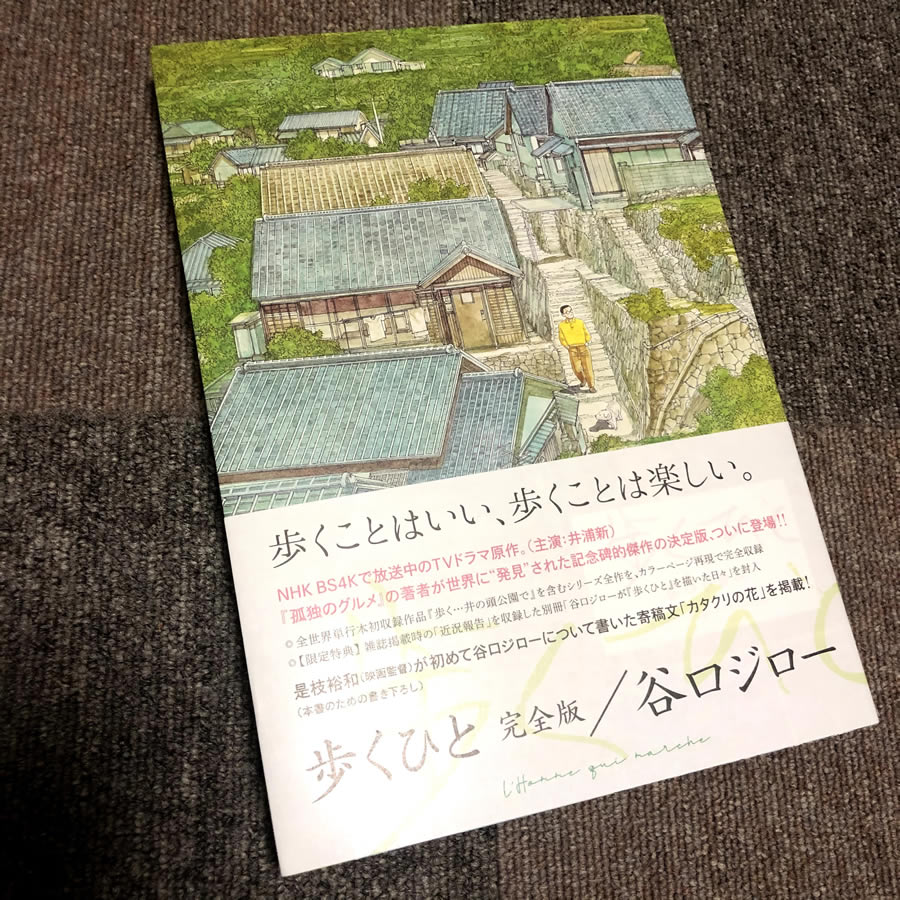 歩くことはいい、歩くことは楽しい。
NHK BS4Kで放送中のTVドラマ原作。（主演：井浦新）
『孤独のグルメ』の著者が世界に“発見”された記念碑的傑作の決定版、ついに登場!!
◎全世界単行本初収録作品『歩く…井の頭公園で』を含むシリーズ全作を、カラーページ再現で完全収録
◎【限定特典】雑誌掲載時の「近況報告」を収録した別冊「谷口ジローが『歩くひと』を描いた日々」を封入
是枝裕和（映画監督）が初めて谷口ジローについて書いた寄稿文「カタクリの花」を掲載！
（本書のための書き下ろし）
歩くひと 完全版／谷口ジロー
L'Homme qui marche